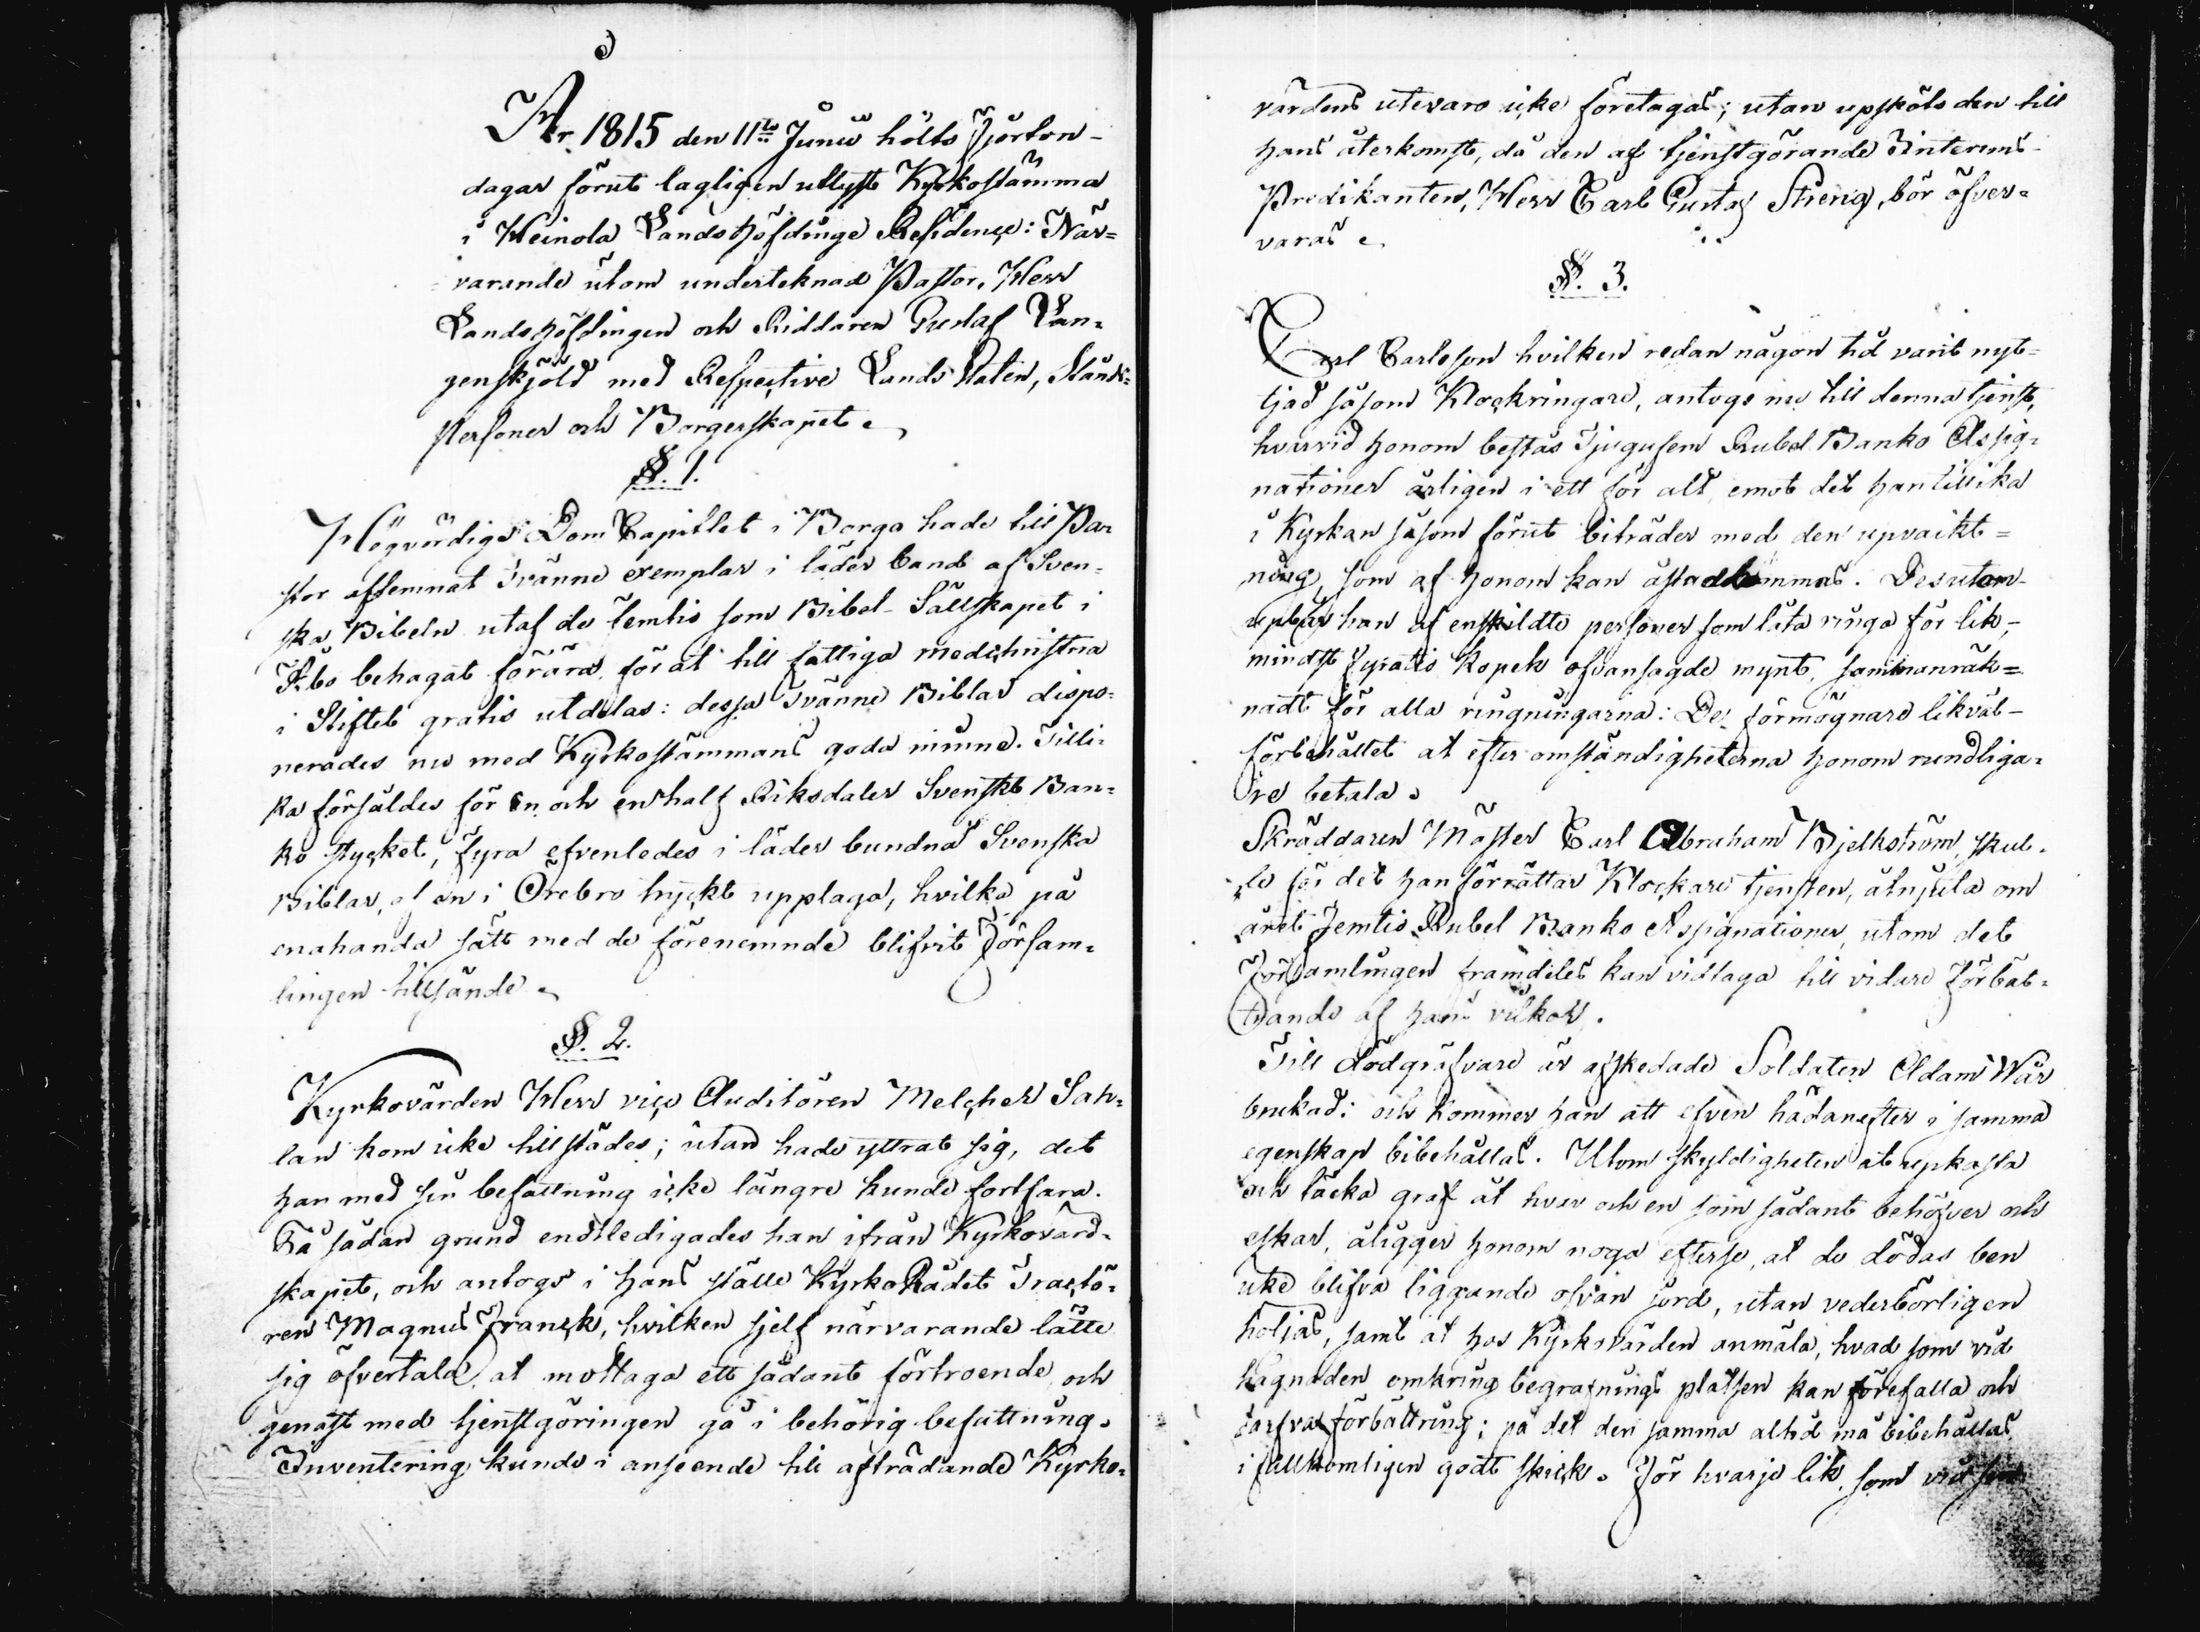 År 1815 den 11te Junii hölts fjorton-
dagar förut lagligen utlyst Kyrkostämma
i Heinola Landshöfdinge Residence: När=
varande utom undertecknad Pastor, Herr
Landshöfdingen och Riddaren Gustaf Lan=
genskjöld med Respective Lands Staten, Stånds=
Personer och Borgerskapet.
§. 1.
Högvürdige Dom Capitlet i Borgo hade till Pa=
stor aflemnat Tvänne exemplar i läder band af Sven=
ska Bibeln utaf de Femtio som Bibel-Sällskapet i
Åbo behagat förära, för at till fattiga medchristna
i Stiftet gratis utdelas: dessa Tvänne Biblar dispo=
nerades nu med Kyrkostämmans goda minne. Tilli=
ka försåldes för En och en half Riksdaler Svenskt Ban=
ko stycket, fyra efvenledes i läder bundna Svenska
Biblar, af en i Örebro tryckt upplaga, hvilka på
enahanda sätt med de förenemnde blifvit Försam=
lingen tillsände.
§. 2.
Kyrkovärden Herr vice Auditören Melcher Sah=
lan kom icke tillstädes; utan hade yttrat sig, det
han med sin befattning icke längre kunde fortfara.
På sådan grund endtledigades han ifrån Kyrkovärd=
skapet, och antogs i hans ställe KyrkoRådet Tractö=
ren Magnus Franck, hvilken sjelf närvarande lätte
sig öfvertala, at mottaga ett sådant förtroende, och
genast med tjenstgöringen gå i behörig befattning.
Inventering kunde i anseende till afträdande Kyrko=
värdens utevaro icke företagas; utan upsköts den till
hans återkomst, då den af tjenstgörande Interims-
Predikanten, Herr Carl Gustaf Streng, bör öfver=
varas.
§. 3.
Carl Carlsson hvilken redan någon tid varit nyt=
tjad såsom Klockringare, antogs nu till denna tjenst,
hvarvid honom bestås Tjugufem Rubel Banko Assig=
nationer årligen i ett för alt, emot det han tillika
i Kyrkan såsom förut biträder med den upvakt=
ning, som af honom kan åstadkommas. Desutom
upbär han af enskildte personer som låta ringa för lik,
mindst Fyratio Kopek ofvansagde mynt, sammanräk=
nadt för alla ringningarna: De förmögnare likväl
förbehållet at efter omständigheterna honom rundliga=
re betala.
Skräddaren Mäster Carl Abraham Bjelkström, skul=
le för det han förrättar Klockare tjensten, åtnjuta om
året Femtio Rubel Banko Assignationer, utom det
Församlingen framdeles kan vidtaga till vidare förbät=
trande af hans vilkor.
Till dödgräfvare är afskedade Soldaten Adam Wår
brukad: och kommer han att efven hädanefter i samma
egenskap bibehållas. Utom skyldigheten at upkasta
och täcka graf åt hvar och en som sådant behöfver och
eskar, åligger honom noga efterse, at de dödas ben
icke blifva liggande ofvan jord, utan vederbörligen
höljas, samt at hos Kyrkovärden anmäla, hvad som vid
hägnaden omkring begrafnings platsen kan förefalla och
tarfva förbättring; på det den samma altid må bibehållas
i fullkomligen godt skick. För hvarje lik, som vid